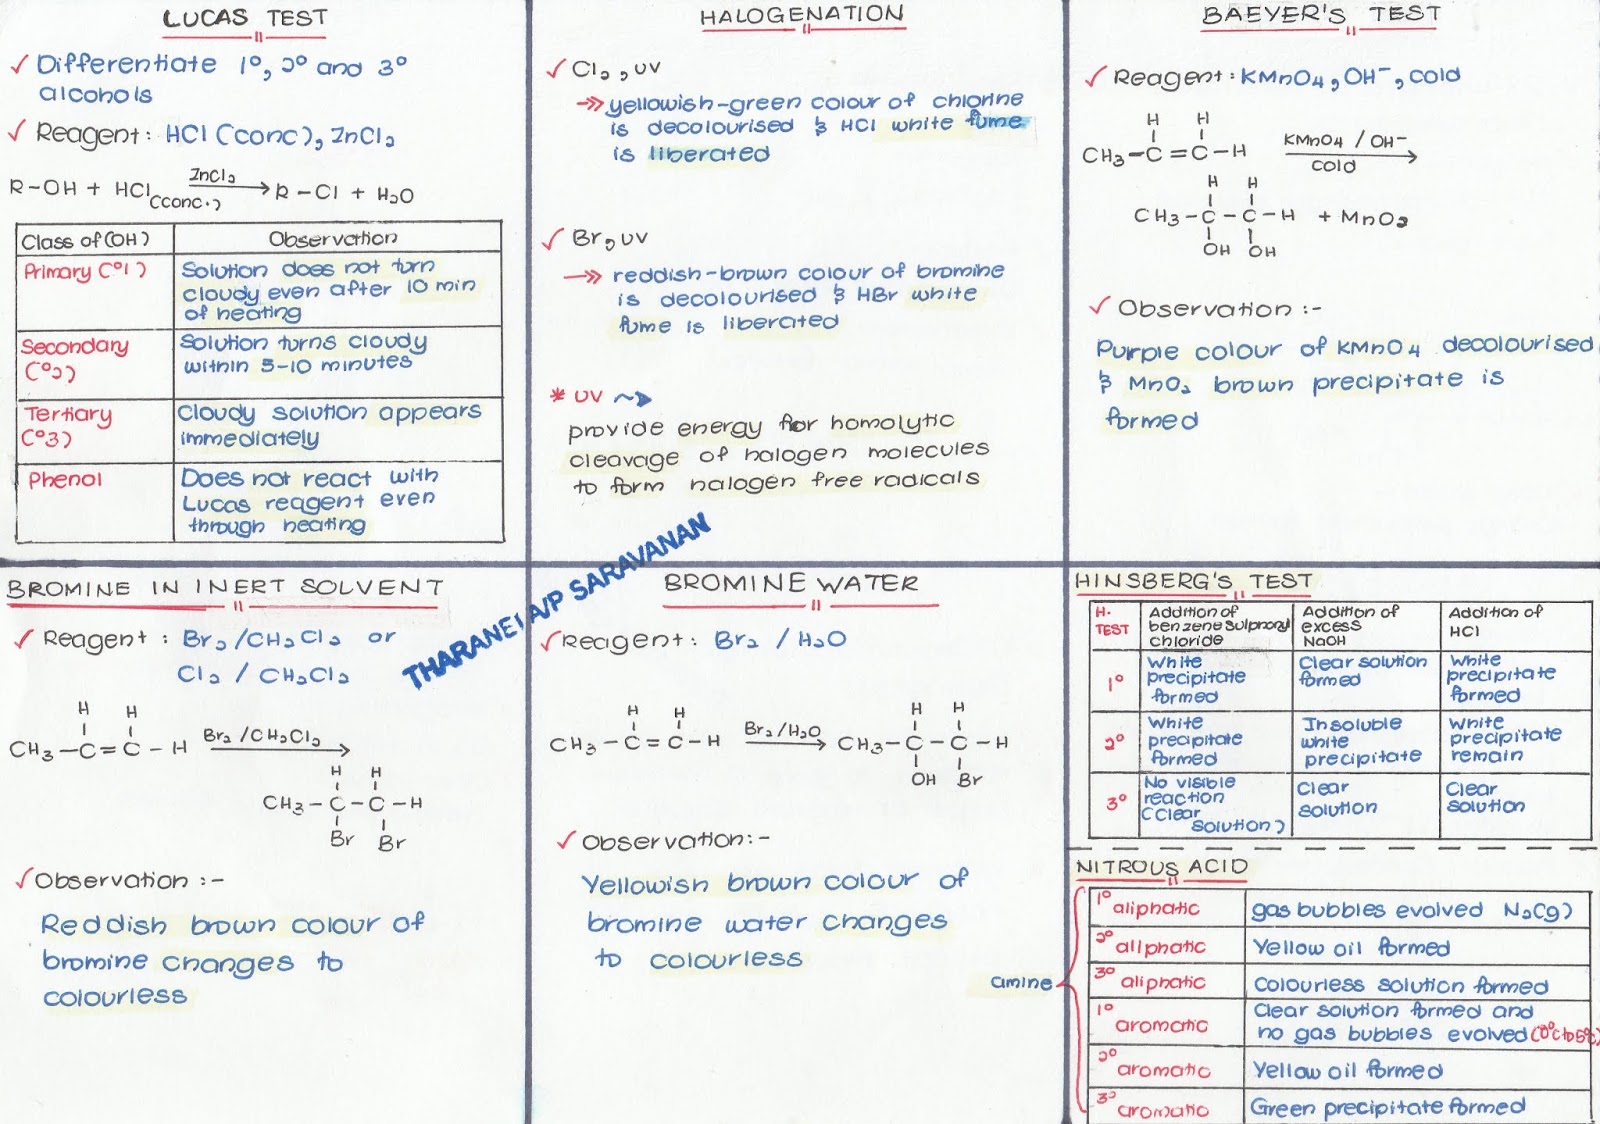 LUCAS TEST
✓ Differentiate 1°, 2° and 3°
alcohols
✓ Reagent : HCl (conc), ZnCl2
R-OH + HCl (conc.) ZnCl2 → R-Cl + H2O
Class of (OH) Observation
Primary (°1) Solution does not turn
cloudy even after 10 min
of heating
Secondary (°2) Solution turns cloudy
within 5-10 minutes
Tertiary (°3) Cloudy solution appears
immediately
Phenol Does not react with
Lucas reagent even
through heating
HALOGENATION
✓ Cl2, UV
→» yellowish-green colour of chlorine
is decolourised & HCl white fume
is liberated
✓ Br2 UV
→» reddish-brown colour of bromine
is decolourised & HBr white
fume is liberated
* UV
provide energy for homolytic
cleavage of halogen molecules
to form halogen free radicals
BAEYER'S TEST
✓ Reagent : KMnO4, OH-, cold
H H
CH3-C=C-H KMnO4 / OH- → cold
H H
CH3-C-C-H + MnO2
OH OH
✓ Observation :-
Purple colour of KMnO4 decolourised
& MnO2 brown precipitate is
formed
THARANEI A/P SARAVANAN
BROMINE IN INERT SOLVENT
✓ Reagent : Br2 /CH2Cl2 or
Cl2 / CH2Cl2
H H
CH3-C=C-H Br2 /CH2Cl2 →
H H
CH3-C-C-H
Br Br
✓ Observation :-
Reddish brown colour of
bromine changes to
colourless
BROMINE WATER
✓ Reagent : Br2 / H2O
H H H H
CH3-C=C-H Br2 / H2O → CH3-C-C-H
OH Br
✓ Observation:-
Yellowish brown colour of
bromine water changes
to colourless
HINSBERG'S TEST
H. TEST Addition of benzene sulphonyl chloride Addition of excess NaOH Addition of HCl
1° White precipitate formed Clear solution formed White precipitate formed
2° White precipitate formed Insoluble white precipitate White precipitate remain
3° No visible reaction (Clear solution) Clear solution Clear solution
NITROUS ACID
amine
1° aliphatic gas bubbles evolved N2(g)
2° aliphatic Yellow oil formed
3° aliphatic Colourless solution formed
1° aromatic Clear solution formed and
no gas bubbles evolved (0°C to 5°C)
2° aromatic Yellow oil formed
3° aromatic Green precipitate formed